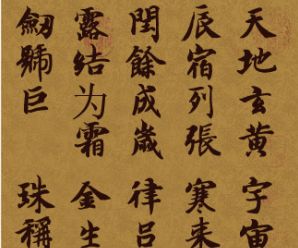 天地玄黄 宇宙
辰宿列張 寒来
閏餘成歳 律吕
露結为霜 金生
劒號巨 珠稱